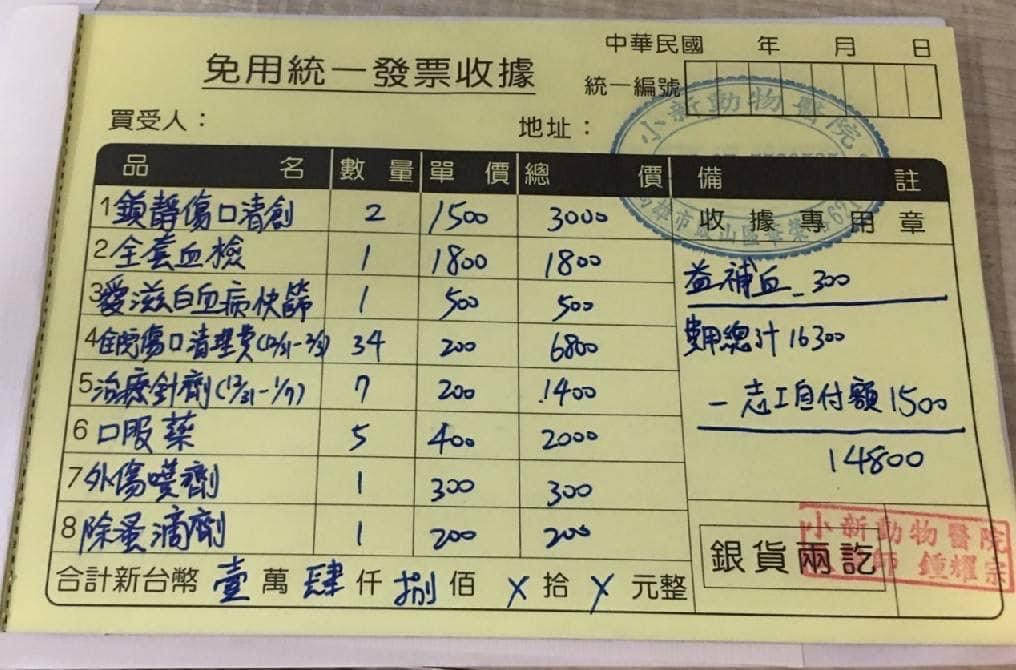 中華民國 年 月 日
免用統一發票收據
統一編號
買受人：
地址：
小新動物醫院
品名 數量 單價 總價 備註
收據專用章
1鎮靜傷口清創 2 1500 3000
2全套血檢 1 1800 1800
3愛滋白血病快篩 1 500 500
4住院傷口清理費(12/31-2/3) 34 200 6800
5治療針劑(12/31-1/7) 7 200 1400
6口服藥 5 400 2000
7外傷噴劑 1 300 300
8除蚤滴劑 1 200 200
益補血_300
費用總計16300
-志工自付額1500
14800
合計新台幣壹萬肆仟捌佰X拾X元整
銀貨兩訖
小新動物醫院
師 鍾耀宗